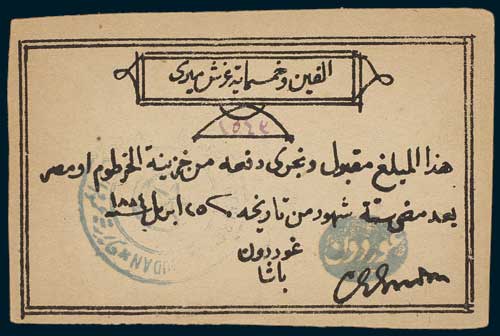 الفين وخمسماية غرش ميرى
هذا المبلغ مقبول ونجرى دفعه من خزينة الخرطوم او مصر
بعد مضى ستة شهور من تاريخه ٢٥ ابريل سنة ١٨٨٤
غوردون
باشا
غوردون
C G Gordon